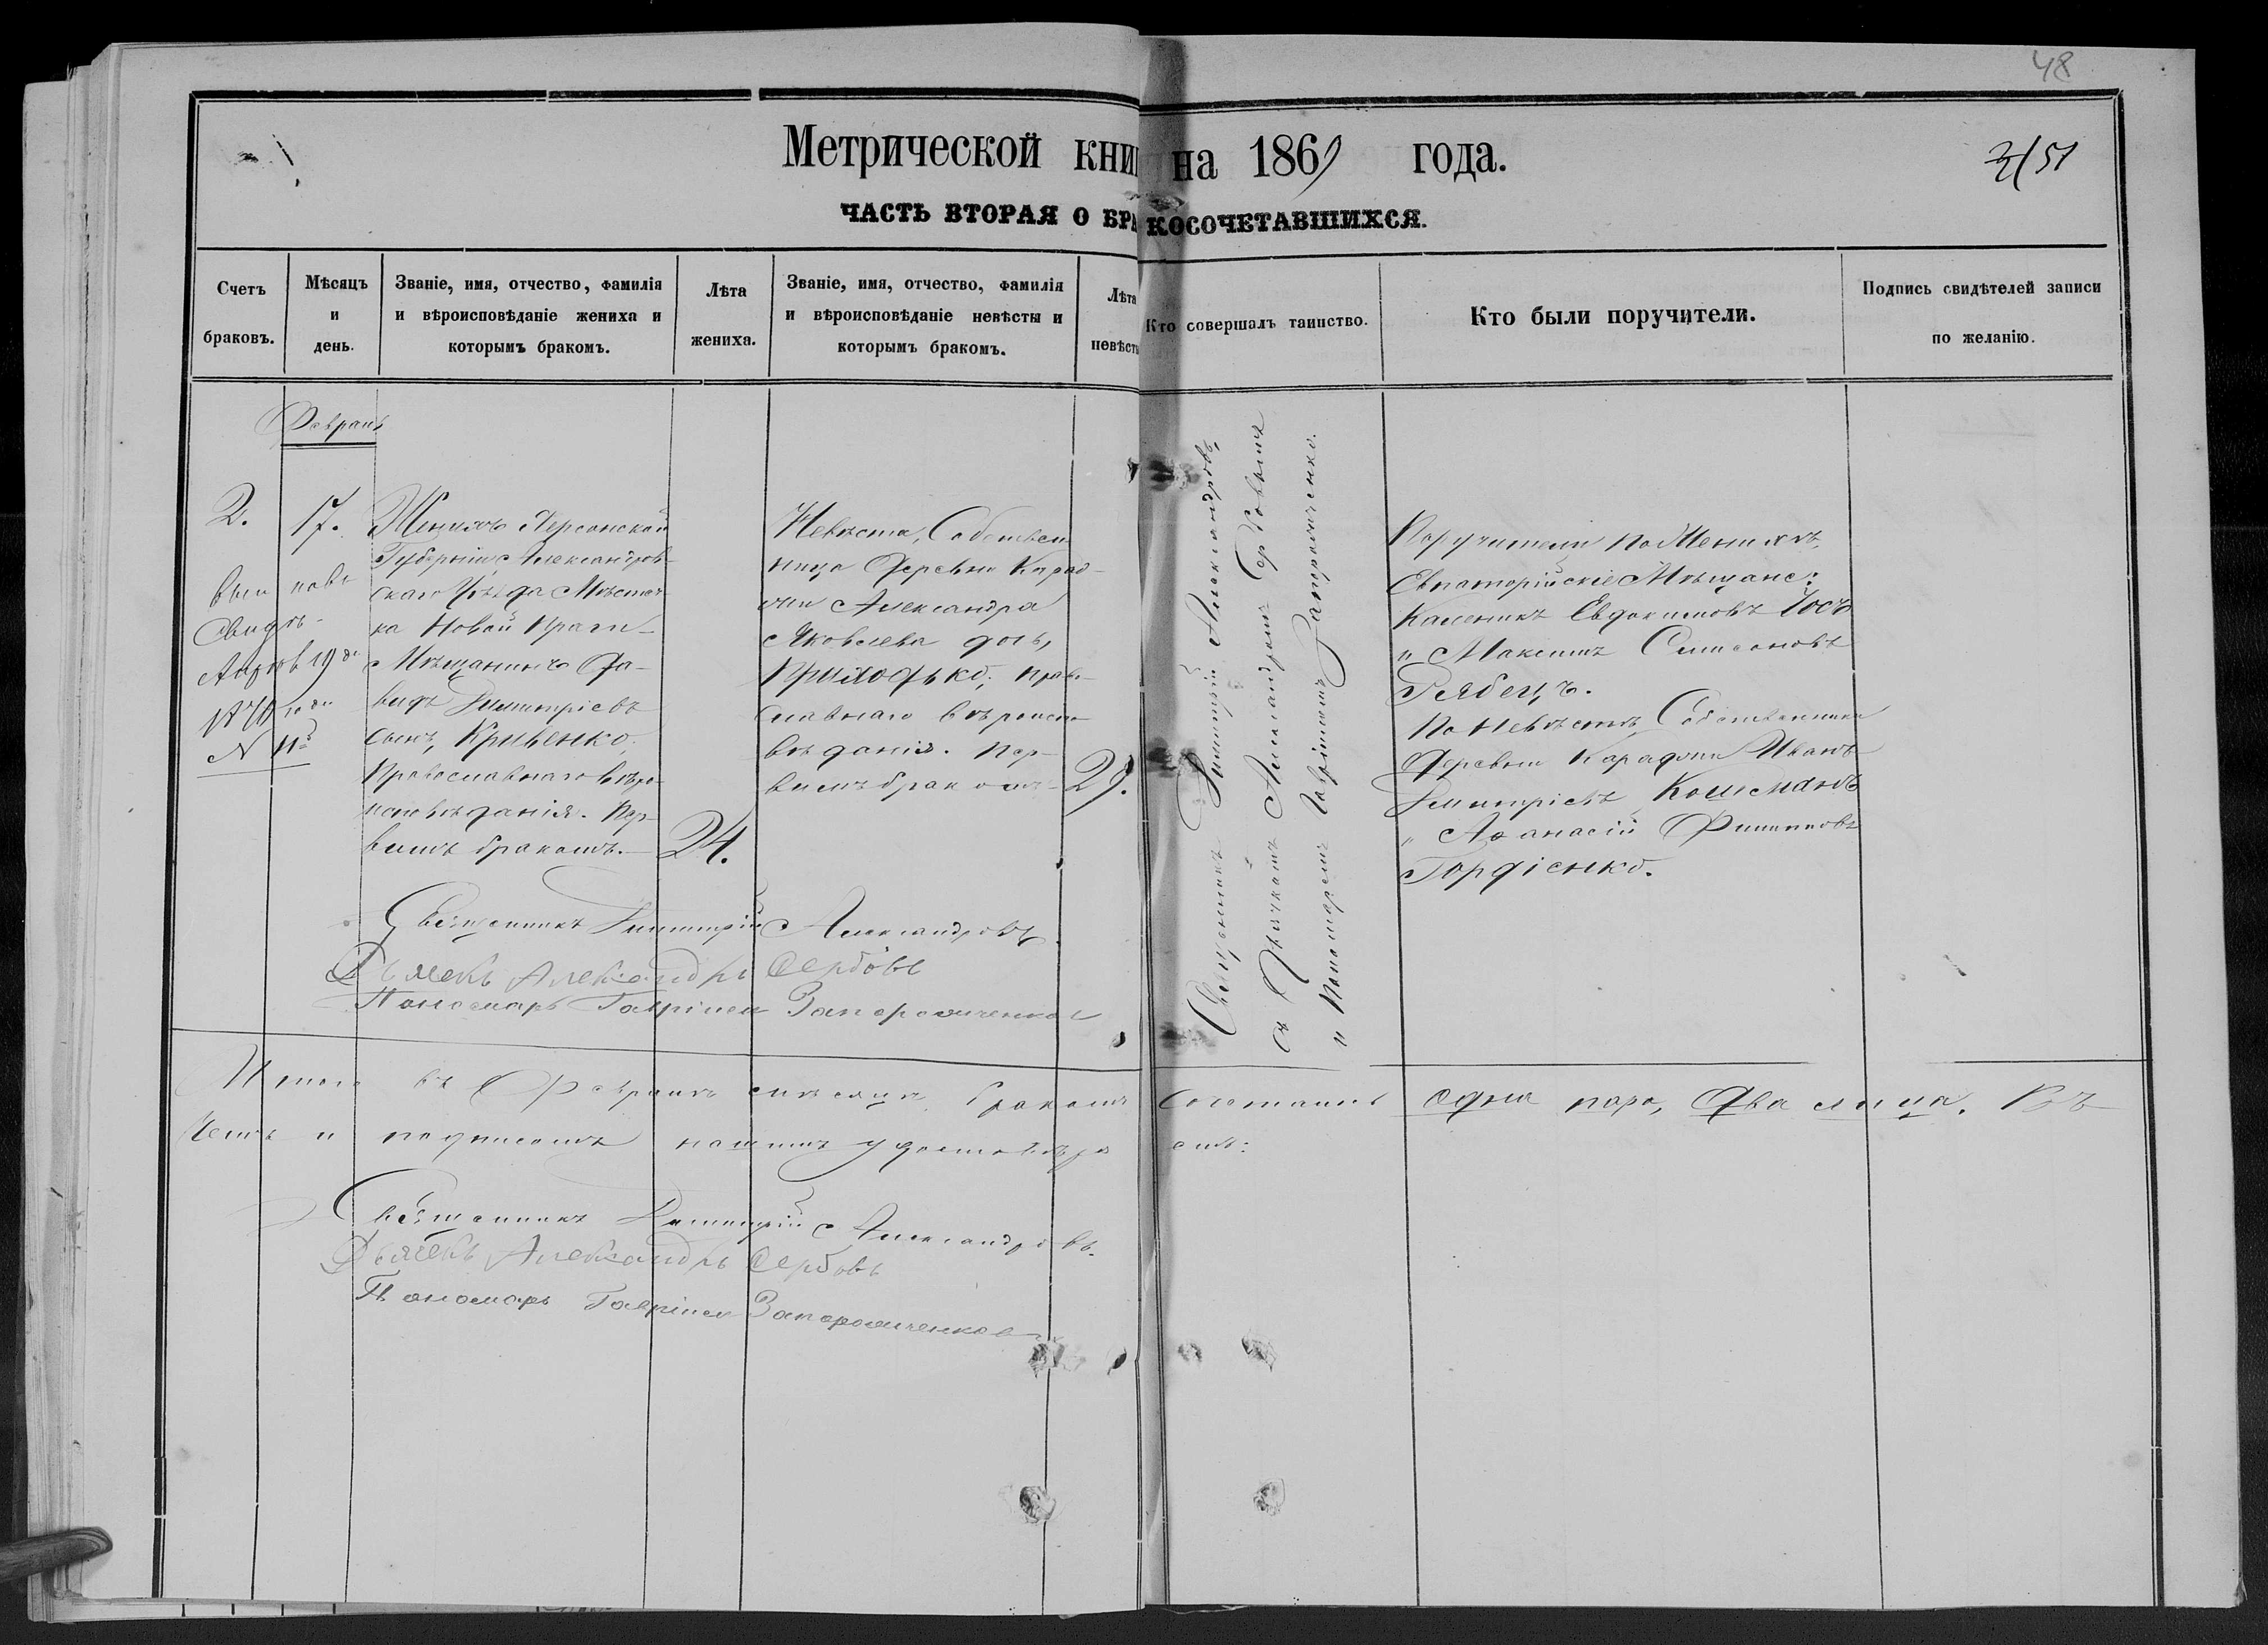 48
Метрической книги на 1869 года.
3/51
ЧАСТЬ ВТОРАЯ О БРАКОСОЧЕТАВШИХСЯ.
Счетъ браковъ.
Мѣсяцъ и день.
Званіе, имя, отчество, фамилія и вѣроисповѣданіе жениха и которымъ бракомъ.
Лѣта жениха.
Званіе, имя, отчество, фамилія и вѣроисповѣданіе невѣсты и которымъ бракомъ.
Лѣта невѣсты
Кто совершалъ таинство.
Кто были поручители.
Подпись свидѣтелей записи по желанію.
Февраль
2.
17.
Свидѣ-
19
№ 11
Женихъ Херсонской
Губерніи, Александров-
скаго Уѣзда Мѣстеч-
ка Новой Праги
Мѣщанинъ Да-
видъ Димитріевъ
сынъ, Кривенко,
Православнаго вѣро-
исповѣданія. Пер-
вымъ бракомъ.
24.
Невѣста, Собствен
ница Деревни Карад-
жи Александра
Яковлева дочь,
Приходько, право-
славнаго вѣроиспо-
вѣданія. Пер-
вымъ бракомъ
29.
Священникъ Димитрій Александровъ,
съ Дьячкомъ Александромъ Сербовымъ
и Пономаремъ Гавріиломъ Запорожченко.
Поручители по Женихѣ,
Евпаторійскіе Мѣщане:
Каленикъ Евдокимовъ
и Максимъ Симеоновъ
Рябецъ.
По Невѣстѣ, Собственники
Деревни Караджи Иванъ
Димитріевъ Кошманъ
и Аѳанасій Филипповъ
Гордіенко.
Священникъ Димитрій Александровъ.
Дьячекъ Александръ Сербовъ
Пономарь Гавріилъ Запорожченковъ
Итого въ Февралѣ мѣсяцѣ бракомъ сочеталось одна пара, два лица. Въ
чемъ и подписомъ нашимъ удостовѣряемъ:
Священникъ Димитрій Александровъ.
Дьячекъ Александръ Сербовъ
Пономарь Гавріилъ Запорожченковъ